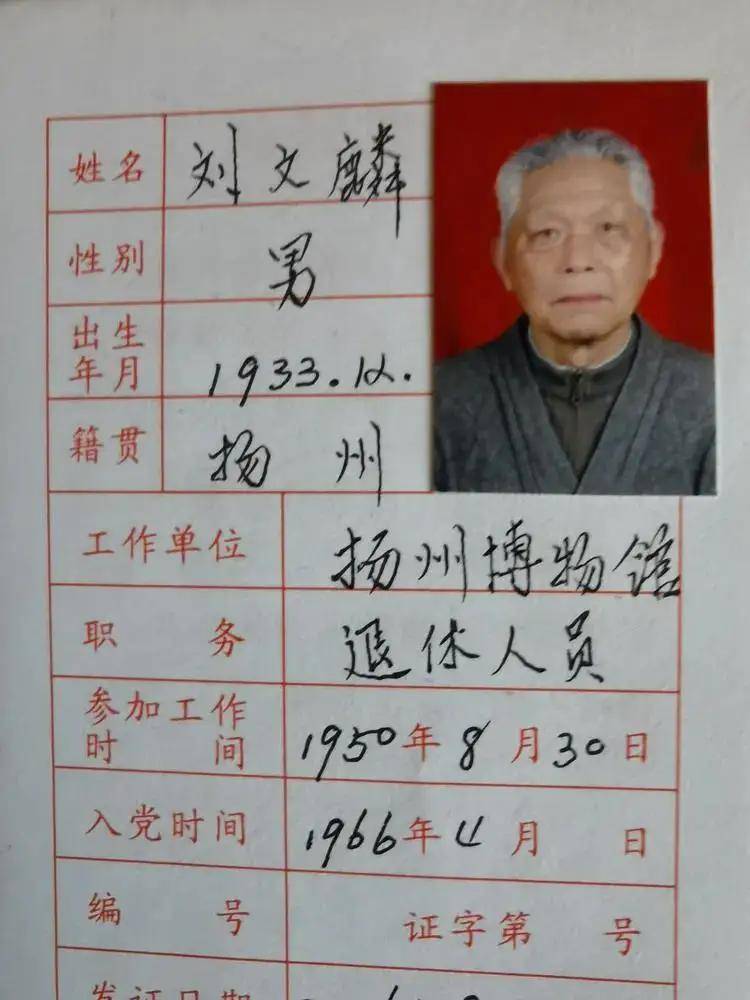 姓名 刘文麟
性别 男
出生年月 1933.12.
籍贯 扬州
工作单位 扬州博物馆
职务 退休人员
参加工作时间 1950年8月30日
入党时间 1966年4月 日
编号 证字第 号
发证日期